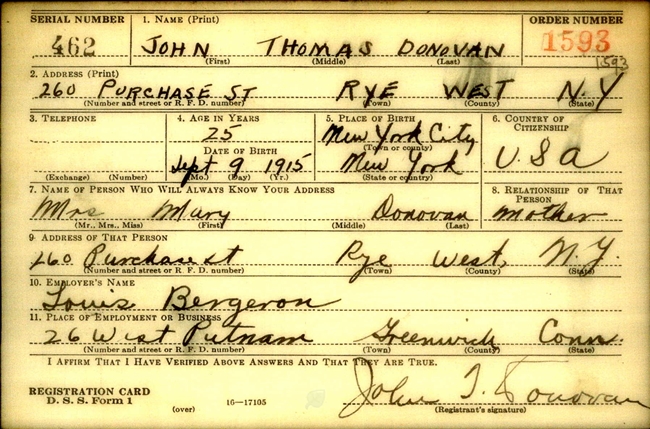 SERIAL NUMBER 1. NAME (Print) ORDER NUMBER
462 JOHN THOMAS DONOVAN 1593
(First) (Middle) (Last) 1593
2. ADDRESS (Print)
260 PURCHASE ST RYE WEST N.Y
(Number and street or R. F. D. number) (Town) (County) (State)
3. TELEPHONE 4. AGE IN YEARS 5. PLACE OF BIRTH 6. COUNTRY OF CITIZENSHIP
25 New York City
(Town or county)
DATE OF BIRTH U.S.A
Sept 9 1915 New York
(Exchange) (Number) (Mo.) (Day) (Yr.) (State or country)
7. NAME OF PERSON WHO WILL ALWAYS KNOW YOUR ADDRESS 8. RELATIONSHIP OF THAT PERSON
Mrs Mary Donovan Mother
(Mr., Mrs., Miss) (First) (Middle) (Last)
9. ADDRESS OF THAT PERSON
260 Purchase st Rye West. N.Y.
(Number and street or R. F. D. number) (Town) (County) (State)
10. EMPLOYER'S NAME
Louis Bergeron
11. PLACE OF EMPLOYMENT OR BUSINESS
26 West Putnam Greenwich Conn.
(Number and street or R. F. D. number) (Town) (County) (State)
I AFFIRM THAT I HAVE VERIFIED ABOVE ANSWERS AND THAT THEY ARE TRUE.
REGISTRATION CARD John T. Donovan
D. S. S. Form 1 (over) 16—17105 (Registrant's signature)